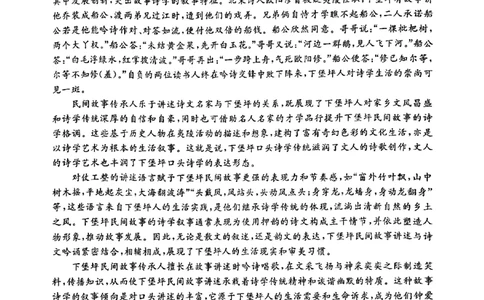 他乔装成船公,渡两弟兄过江时,遭到他们的戏弄。兄弟俩自恃才学瞧不起船公,二人承诺船
公若是他能吟诗作对、对答如流,便付他双倍的船钱。船公欣然同意。哥哥说:“一棵枇杷树,
两个大丫权。”船公答:“未结黄金果,先开白玉花。”哥哥又说:“河边一群鹅,见人飞下河。”船公
答:“白毛浮绿水,红掌拨清波。”哥哥再出:“一步跨上舟,气死欧阳修。”船公便答:“修已知尔等,
尔等不知修(羞)。”自负的两位读书人终在吟诗交锋中败下阵来,下堡坪人对诗学生活的崇尚可
见一斑。
民间故事传承人乐于讲述诗文名家与下堡坪的关系,既展现了下堡坪人对家乡文风昌盛
和诗学传统深厚的自信和自豪,同时也可借助名人名家的才学品行提升下堡坪民间故事的诗
学格调。这些基于历史人物在夷陵活动的描述和想象,建构了富有奇幻色彩的文化生活,亦是
以诗学艺术为根本的生活叙事。这就是说,下堡坪口头诗学传统滋润了文人的诗歌创作,文人
的诗学艺术也丰富了下堡坪口头诗学的表达形态。
对仗工整的讲述语言赋予下堡坪民间故事更强的表现力和节奏感,如“窗外竹叶飘,山中
树木摇,平地起灰尘,大海翻波涛”“头戴风,风绕头,头动风点头;身穿龙,龙蟠身,身动龙翻身”
等,这些语言来自下堡坪人的生活实践,是他们继承诗学传统的体现,流淌出清新自然的乡土
之风。下堡坪民间故事的诗学叙事通常表现为使用押韵的诗文构成主干情节,并依此塑造人
物形象,推动故事发展。因此,无论是散文的叙述,还是韵文的表达,下堡坪民间故事讲述与诗
文吟诵紧密结合,相辅相成,展现了下堡坪人的生活现实和审美习惯。
下堡坪民间故事传承人擅长在故事讲述时吟诗唱歌,在文采飞扬与神采奕奕之际制造笑
料、传播知识,从而使下堡坪民间故事讲述承载着诗学传统精神和诙谐幽默的特质。这种故事
诗学的叙事倾向是对口头讲述的丰富,它源于下堡坪人的生活需要和生命诉求,成为他们钟爱